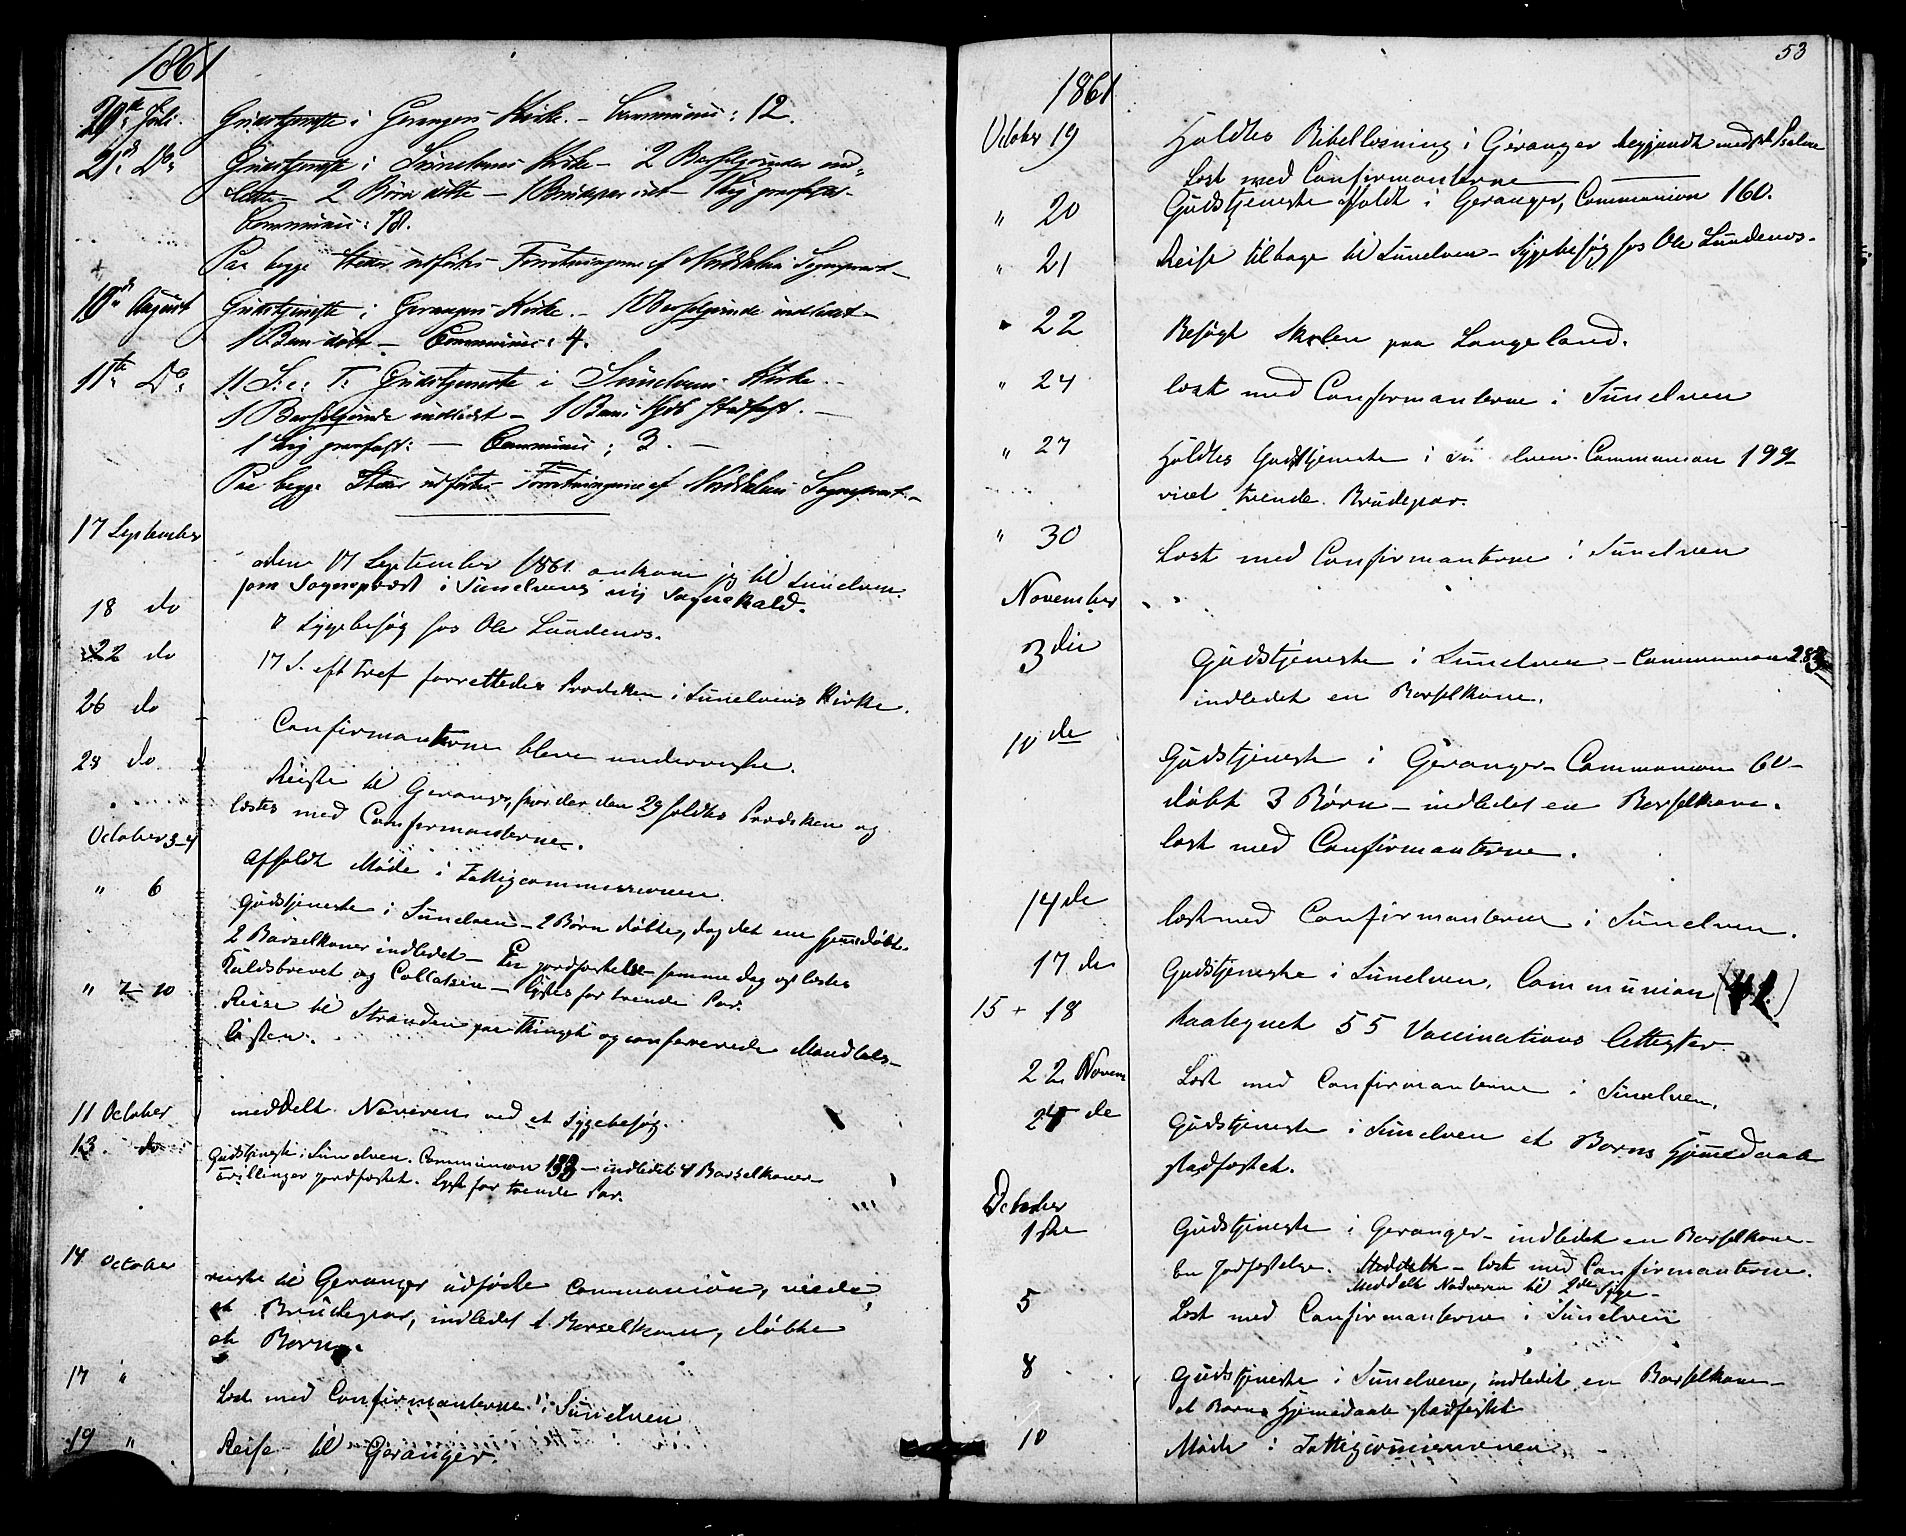 1861
20de Juli. Gudstjeneste i Gerangers Kirke. – Communic: 12.
21de Do: Gudstjeneste i Sunelvens Kirke – 2 Barselqvinder ind-
ledte – 2 Børn døbte – 1 Brudepar viet – 1 Lig jordfæst.
Communic: 18.
Paa begge Steder udførtes Forretningerne af Norddalens Sognepræst –
10de August Gudstjeneste i Gerangers Kirke. – 1 Barselqvinde indledet –
1 Barn døbt – Communic: 4.
11te Do: 11 S. e: T: Gudstjeneste i Sunelvens Kirke –
1 Barselqvinde indledet – 1 Barns Hjd. stadfæst. –
1 Lig jordfæst: – Communic: 3. –
Paa begge Steder udførtes Forretningerne af Norddalens Sognepræst. –
17 September den 17 September 1861 ankom jeg til Sunelven
som Sognepræst i Sunelvens nij Sognekald.
18 do Sygebesøg hos Ole Lundenes.
22 do 17 S. eft Tref forrettedes Prædiken i Sunelvens Kirke.
26 do Confirmanterne bleve underviste.
28 do Reiste til Geranger, hvor der den 29 holdtes Prædiken og
læstes med Confirmanterne.
October 3-4 Afholdt Møde i Fattigcommissionen
" 6 Gudstjeneste i Sunelven – 2 Børn døbte, dog det ene hjemedøbt.
2 Barselkoner indledet – En jordfæstelse samme dag oplæstes
Kaldsbrevet og Collatsen – lystes for tvende Par.
" 7-10 Reise til Stranden paa Thinget og confererede Mandtals-
listen.
11 October meddelt Naveren ved et Sygebesøg.
13. do Gudstjeneste i Sunelven. Communion 133 – indledet 4 Barselkoner
Trillinger jordfæstet. Lyst for tvende Par.
14 October reiste til Geranger udførte Communion, viede
et Brudepar, indledet 1 Barselkone, døbte
et Barn.
17 " Læst med Confirmanterne i Sunelven
19 " Reise til Geranger.
53
1861
October 19 Holdtes Bibellæsning i Geranger begyndt med Psalme
Læst med Confirmanterne
" 20 Gudstjeneste afholdt i Geranger, Communion 160.
" 21 Reise tilbage til Sunelven – Sygebesøg hos Ole Lundenes.
" 22 Besøgt Skolen paa Langeland.
" 24 læst med Confirmanterne i Sunelven
" 27 Holdtes Gudstjeneste i Sunelven. Communion 199 –
viet tvende Brudepar.
" 30 Læst med Confirmanterne i Sunelven
November
3die Gudstjeneste i Sunelven – Communion 283
indledet en Barselkone.
10de Gudstjeneste i Geranger – Communion 60 –
døbt 3 Børn – indledet en Barselkone.
læst med Confirmanterne.
14de læst med Confirmanterne i Sunelven.
17de Gudstjeneste i Sunelven. Communion
15 + 18 Paategnet 55 Vaccinations Attester
22 Novem Læst med Confirmanterne i Sunelven.
24de Gudstjeneste i Sunelven et Barns Hjemedaab
stadfæstet.
October
1ste Gudstjeneste i Geranger – indledet en Barselkone –
En Jordfæstelse. Meddelt – læst med Confirmanterne.
Meddelt Nadveren til 2de Syge –
5 Læst med Confirmanterne i Sunelven
8 Gudstjeneste i Sunelven, indledet en Barselkone –
et Barns Hjemedaab stadfæstet
10 Møde i Fattigcomissionen